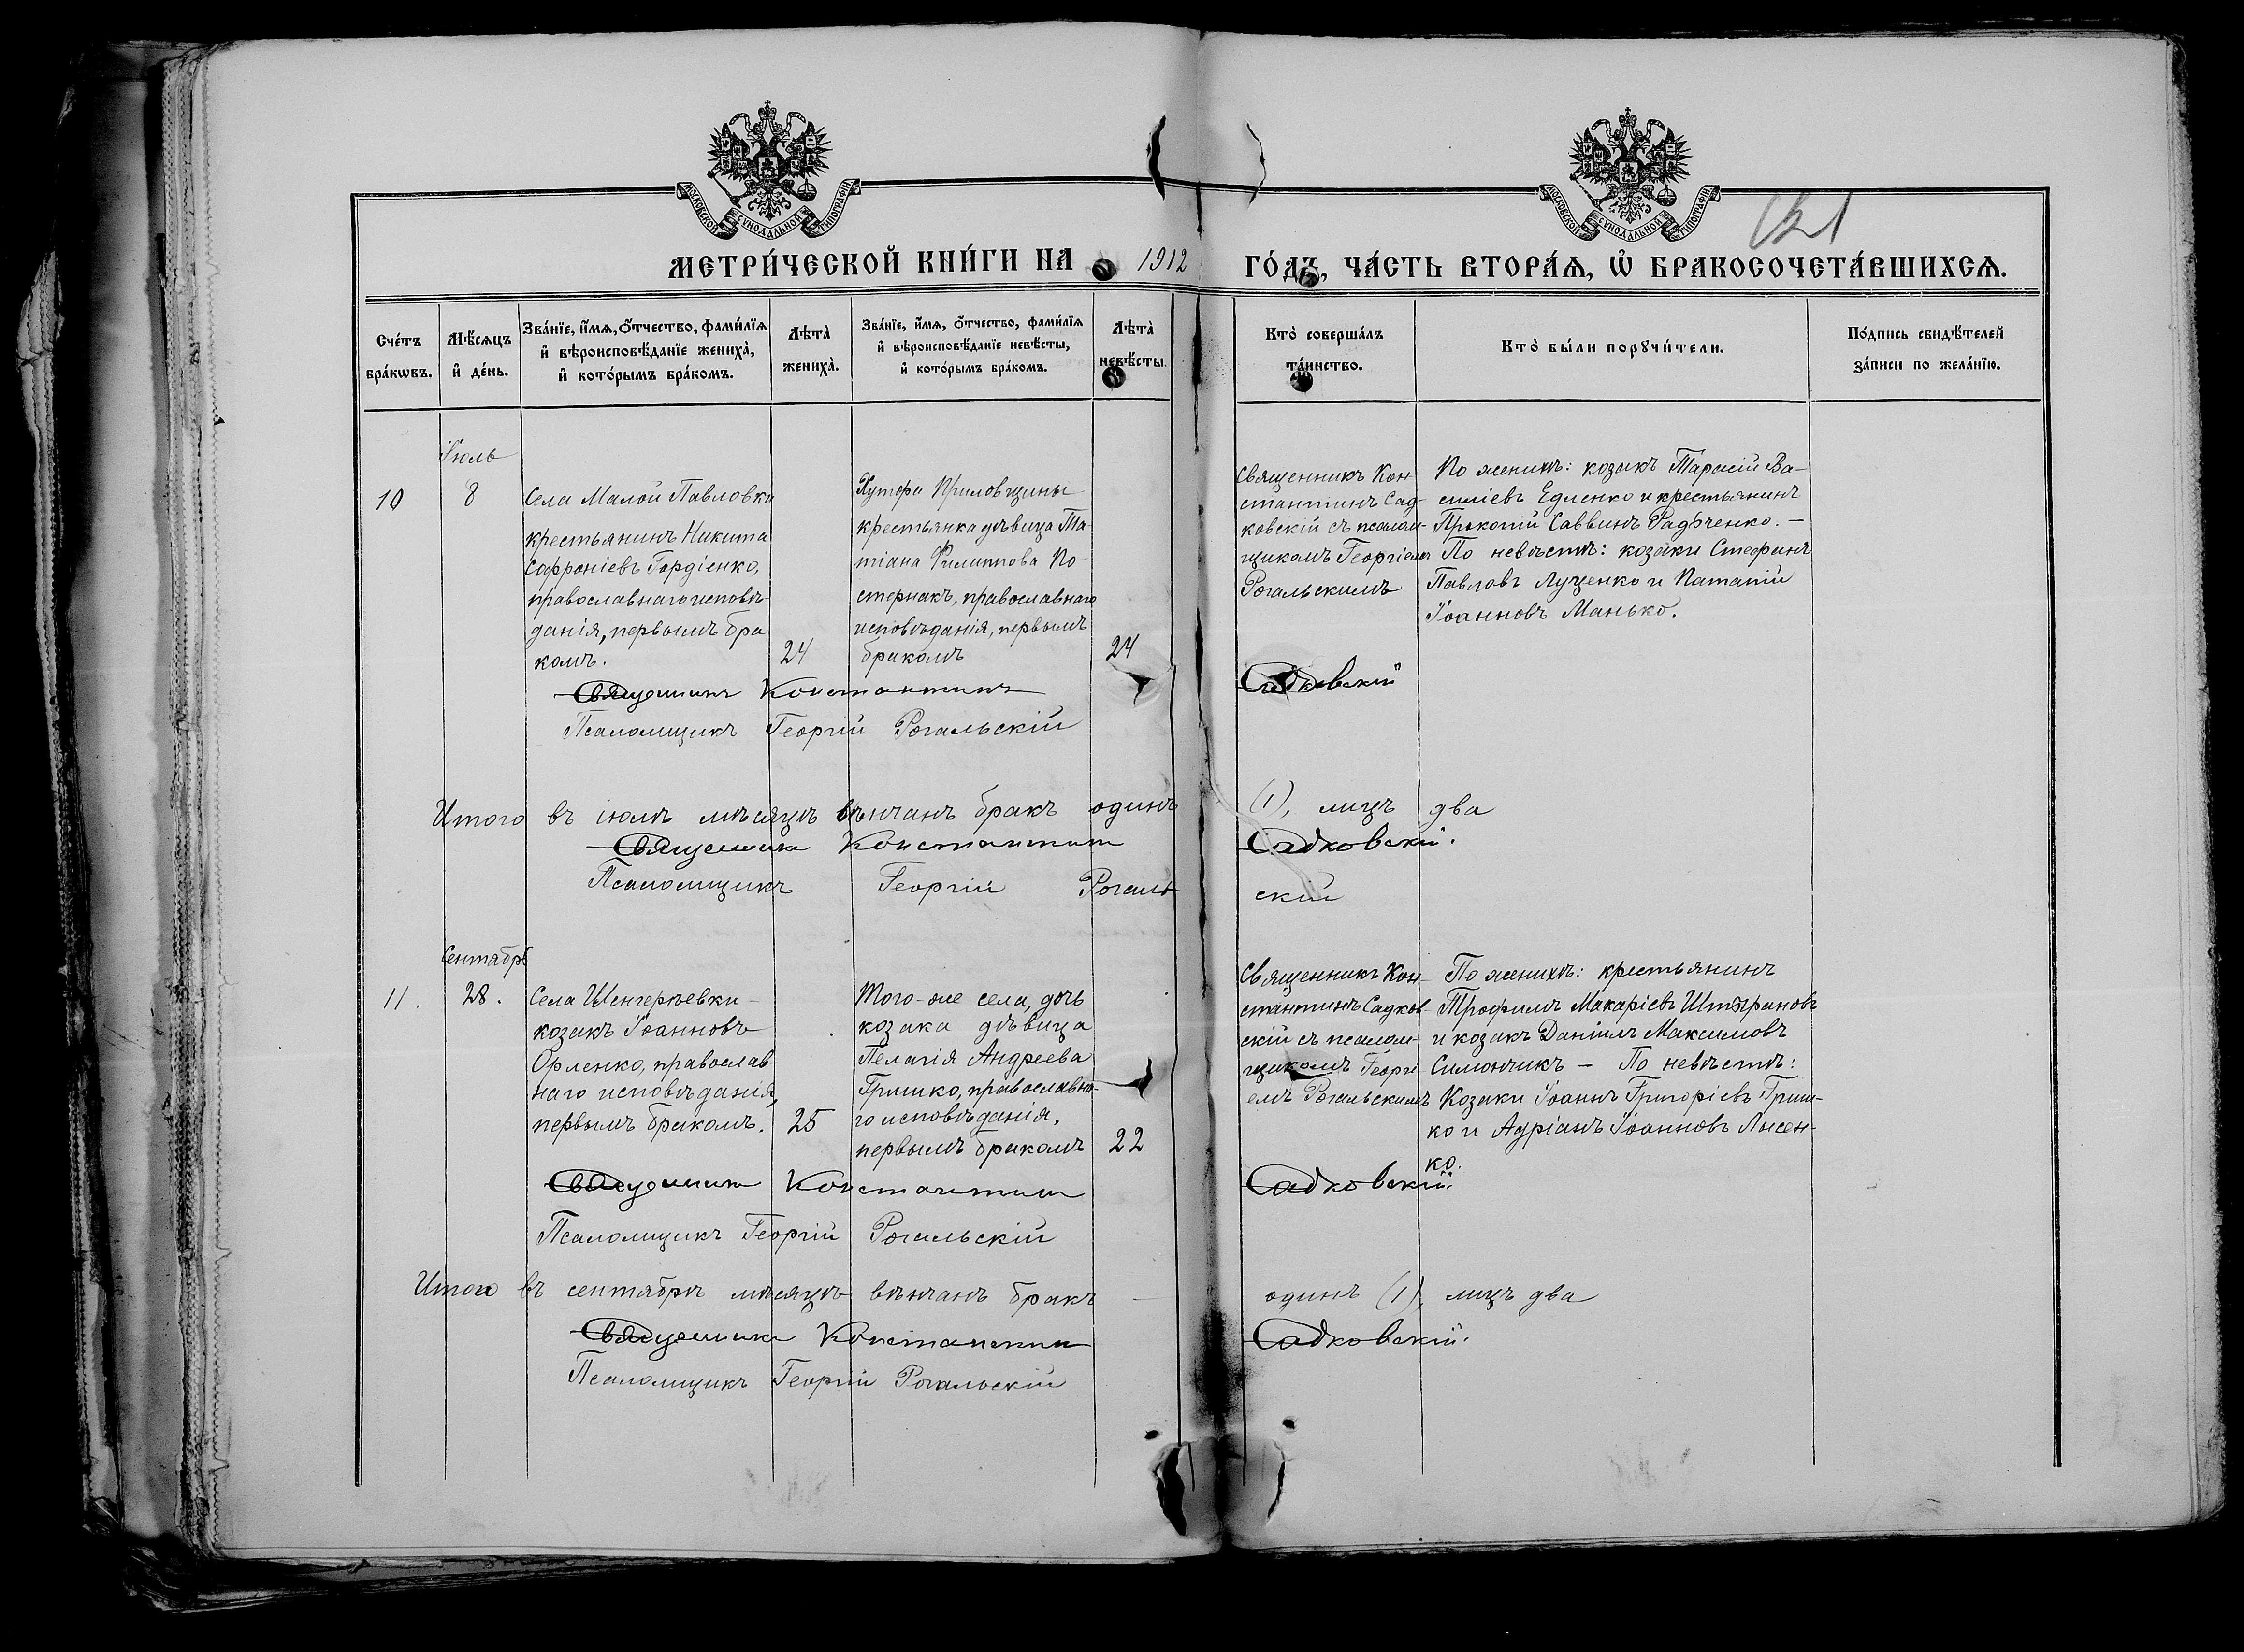 МОСКОВСКОЙ СѴНОДАЛЬНОЙ ТИПОГРАФІИ
МОСКОВСКОЙ СѴНОДАЛЬНОЙ ТИПОГРАФІИ
МЕТРИ́ЧЕСКОЙ КНИ́ГИ НА 1912 ГО́ДЪ, ЧА́СТЬ ВТОРА́Я, Ѡ БРАКОСОЧЕТА́ВШИХСЯ.
Сче́тъ
бра́кѡвъ.
Мѣ́сяцъ
и҆ де́нь.
Зва́нїе, и҆́мя, ѻ҆́тчество, фами́лїя
и҆ вѣроисповѣ́данїе жениха̀,
и҆ кото́рымъ бра́комъ.
Лѣта̀
жениха̀.
Зва́нїе, и҆́мя, ѻ҆́тчество, фами́лїя
и҆ вѣроисповѣ́данїе невѣ́сты,
и҆ кото́рымъ бра́комъ.
Лѣта̀
невѣ́сты.
Кто̀ соверша́лъ
та́инство.
Кто̀ бы́ли порꙋчи́тели.
По́дпись свидѣ́телей
за́писи по жела́нїю.
10
Іюль
8
Села Малой Павловки
крестьянинъ Никита
Софроніевъ Гордіенко,
православнаго исповѣ-
данія, первымъ бра
комъ.
24
Хутора Криловщины
крестьянка дѣвица Та-
тіана Филиппова По-
стернакъ, православнаго
исповѣданія, первымъ
бракомъ
24
Священникъ Кон
стантинъ Сад-
ковскій съ псалом-
щикомъ Георгіемъ
Рогальскимъ
По женихѣ: козакъ Тарасій Ва-
силіевъ Едленко и крестьянинъ
Прокопій Саввинъ Радченко. –
По невѣстѣ: козаки Стефанъ
Павловъ Луценко и Патапій
Іоанновъ Манько.
Священникъ Константинъ Садковскій
Псаломщикъ Георгій Рогальскій
Итого въ іюлѣ мѣсяцѣ вѣнчанъ бракъ одинъ (1), лицъ два
Священникъ Константинъ Садковскій.
Псаломщикъ Георгій Рогальскій
11.
Сентябрь
28.
Села Шенгерѣевки –
козакъ Іоанновъ
Орленко, православ
наго исповѣданія,
первымъ бракомъ.
25
Того-же села, дочь
козака дѣвица
Пелагія Андреева
Гришко, православна-
го исповѣданія,
первымъ бракомъ
22
Священникъ Кон-
стантинъ Садков-
скій съ псалом-
щикомъ Георгі
емъ Рогальскимъ
По женихѣ: крестьянинъ
Трофимъ Макаріевъ
и козакъ Даніилъ Максимовъ
Симончикъ – По невѣстѣ:
Козаки Іоаннъ Григоріевъ Гриш-
ко и Адріанъ Іоанновъ Лысен-
ко.
Священникъ Константинъ Садковскій.
Псаломщикъ Георгій Рогальскій
Итого въ сентябрѣ мѣсяцѣ вѣнчанъ бракъ – одинъ (1), лицъ два
Священникъ Константинъ Садковскій.
Псаломщикъ Георгій Рогальскій